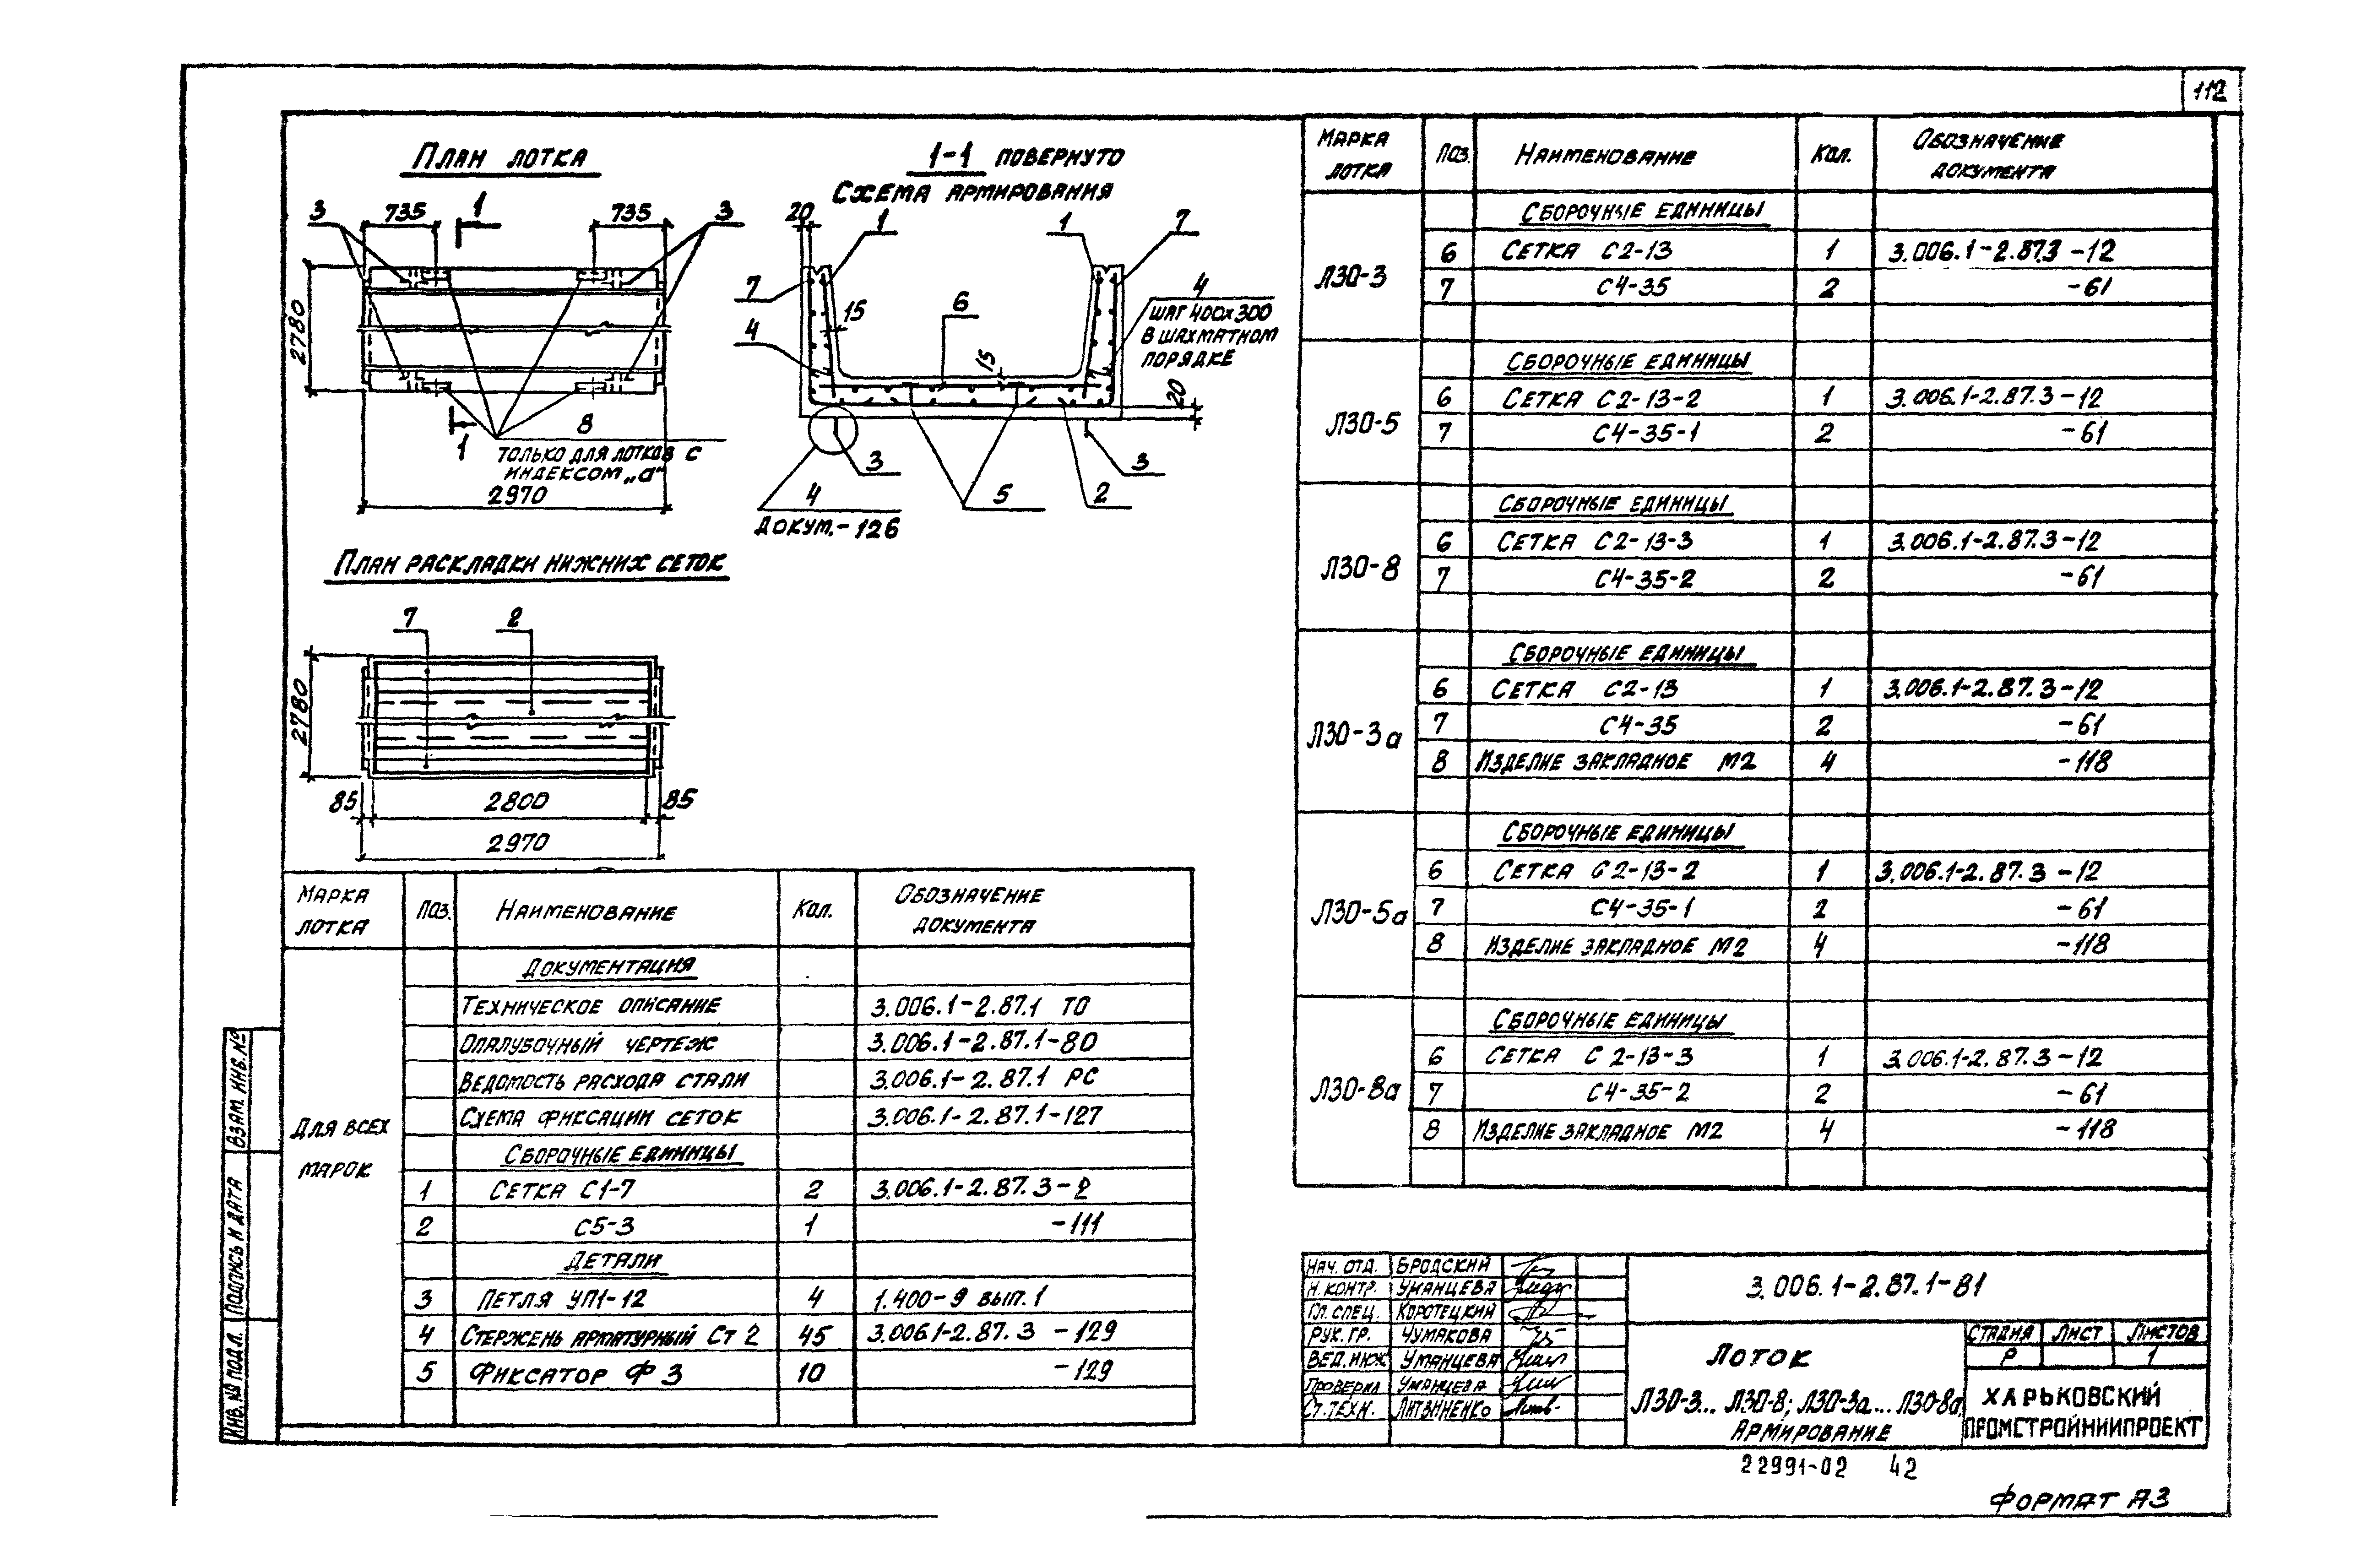 112
План лотка
1-1 повернуто
Схема армирования
3 735 1 735 3
2780
8
только для лотков с
индексом „а"
1
2970
20 1 1 7
7 15 6 4
шаг 400х300
в шахматном
порядке
4 15 20
3 3
4 5 2
докум.-126
План раскладки нижних сеток
7 2
2780
85 2800 85
2970
Марка лотка Поз. Наименование Кол. Обозначение документа
Для всех марок
Документация
Техническое описание 3.006.1-2.87.1 ТО
Опалубочный чертеж 3.006.1-2.87.1-80
Ведомость расхода стали 3.006.1-2.87.1 РС
Схема фиксации сеток 3.006.1-2.87.1-127
Сборочные единицы
1 Сетка С1-7 2 3.006.1-2.87.3-2
2 С5-3 1 -111
Детали
3 Петля УП1-12 4 1.400-9 вып.1
4 Стержень арматурный Ст 2 45 3.006.1-2.87.3 -129
5 Фиксатор Ф 3 10 -129
Марка лотка Поз. Наименование Кол. Обозначение документа
Л30-3
Сборочные единицы
6 Сетка С2-13 1 3.006.1-2.87.3 -12
7 С4-35 2 -61
Л30-5
Сборочные единицы
6 Сетка С2-13-2 1 3.006.1-2.87.3-12
7 С4-35-1 2 -61
Л30-8
Сборочные единицы
6 Сетка С2-13-3 1 3.006.1-2.87.3-12
7 С4-35-2 2 -61
Л30-3а
Сборочные единицы
6 Сетка С2-13 1 3.006.1-2.87.3-12
7 С4-35 2 -61
8 Изделие закладное М2 4 -118
Л30-5а
Сборочные единицы
6 Сетка С2-13-2 1 3.006.1-2.87.3 -12
7 С4-35-1 2 -61
8 Изделие закладное М2 4 -118
Л30-8а
Сборочные единицы
6 Сетка С2-13-3 1 3.006.1-2.87.3-12
7 С4-35-2 2 -61
8 Изделие закладное М2 4 -118
Взам. инв. №
Подпись и дата
Инв. № подл.
Нач. отд. Бродский
Н. контр. Уманцева
Гл. спец. Коротецкий
Рук. гр. Чумакова
Вед. инж Уманцева
Проверил Уманцева
Ст. техн. Литвиненко
3.006.1-2.87.1-81
Лоток
Л30-3... Л30-8; Л30-3а... Л30-8а.
Армирование
Стадия Лист Листов
Р 1
Харьковский
Промстройниипроект
22991-02 42
Формат А3